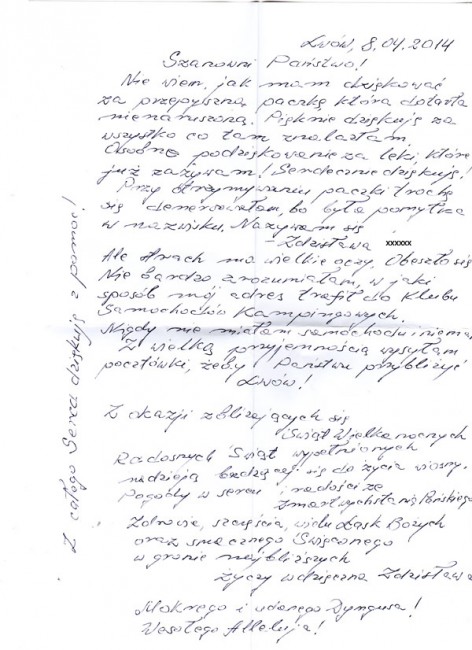 Lwów, 8.04.2014
Szanowni Państwo!
Nie wiem, jak mam dziękować
za przepyszną paczkę która dotarła
nienaruszona. Pięknie dziękuję za
wszystko co tam znalazłam.
Osobne podziękowanie za leki, które
już zażywam! Serdecznie dziękuję!
Przy otrzymywaniu paczki trochę
się denerwowałam, bo była pomyłka
w nazwisku. Nazywam się
- Zdzisława xxxxxx
Ale strach ma wielkie oczy. Obeszło się
Nie bardzo zrozumiałam, w jaki
sposób mój adres trafił do Klubu
Samochodów Kampingowych.
Nigdy nie miałam samochodu i niema.
Z wielką przyjemnością wysyłam
pocztówki, żeby Państwu przybliżyć
Lwów!
Z okazji zbliżających się
Świąt Wielkanocnych
Radosnych Świąt wypełnionych
nadzieją budzącej się do życia wiosny.
Pogody w sercu i radości ze
zmartwychstania Pańskiego
Zdrowia, szczęścia, wielu Łask Bożych
oraz smacznego Święconego
w gronie najbliższych
życzy wdzięczna Zdzisława
Mokrego i udanego Dyngusa!
Wesołego Alleluja!
Z całego Serca dziękuję z pomoc!